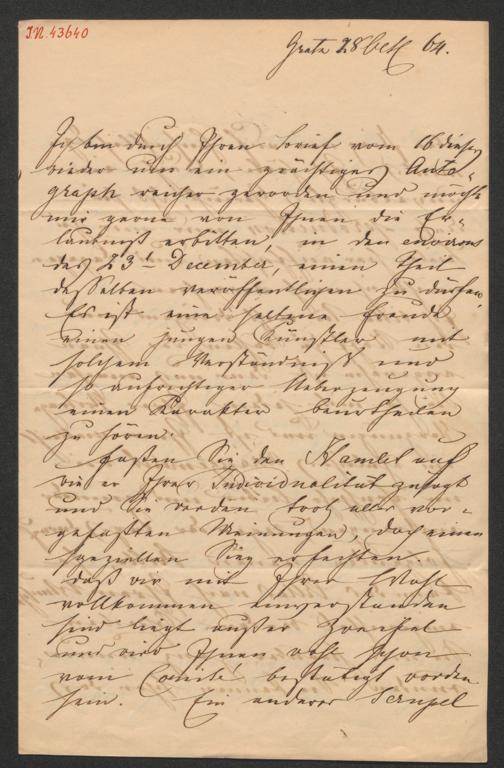 I.N. 43640
Gratz 28 Oct 64.
Ich bin durch Ihren Brief vom 16 dieses
wieder um ein prächtiges Auto-
graph reicher geworden und möchte
mir gerne von Ihnen die Er-
laubniß erbitten, in den environs
des 23t December, einen Theil
desselben veröffentlichen zu dürfen.
Es ist eine seltene Freude
einen jungen Künstler mit
solchem Verständniß und
so aufrichtiger Ueberzeugung
einen Karakter beurtheilen
zu hören.
Faßen Sie den Hamlet auf
wie er Ihrer Individualität zusagt
und Sie werden trotz aller vor-
gefaßten Meinungen, doch einen
speziellen Sieg erfechten.
Daß wir mit Ihrer Wahl
vollkommen einverstanden
sind liegt außer Zweifel
und wird Ihnen wohl schon
vom Comité bestätigt worden
sein. Ein anderer Scrupel